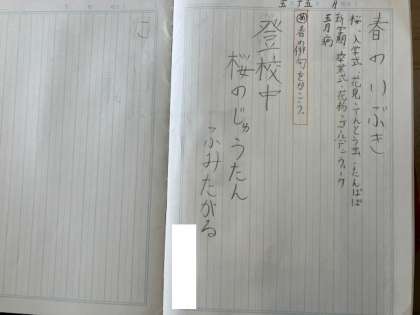 五 十五 月
春のいぶき
桜・入学式・花見・てんとう虫・たんぽぽ
新学期・卒業式・花粉・ゴールデンウィーク
五月病
め 春の俳句をかこう。
登校中
桜のじゅうたん
ふみたがる